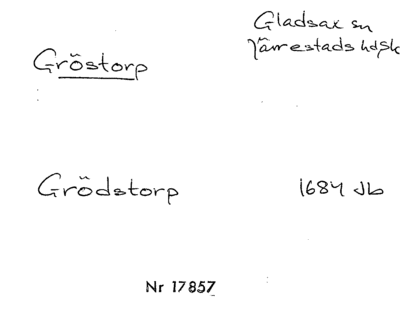 Gröstorp
Gladsax sn
Järrestads hd Sk
Grödstorp
1684 Jb
Nr 17857